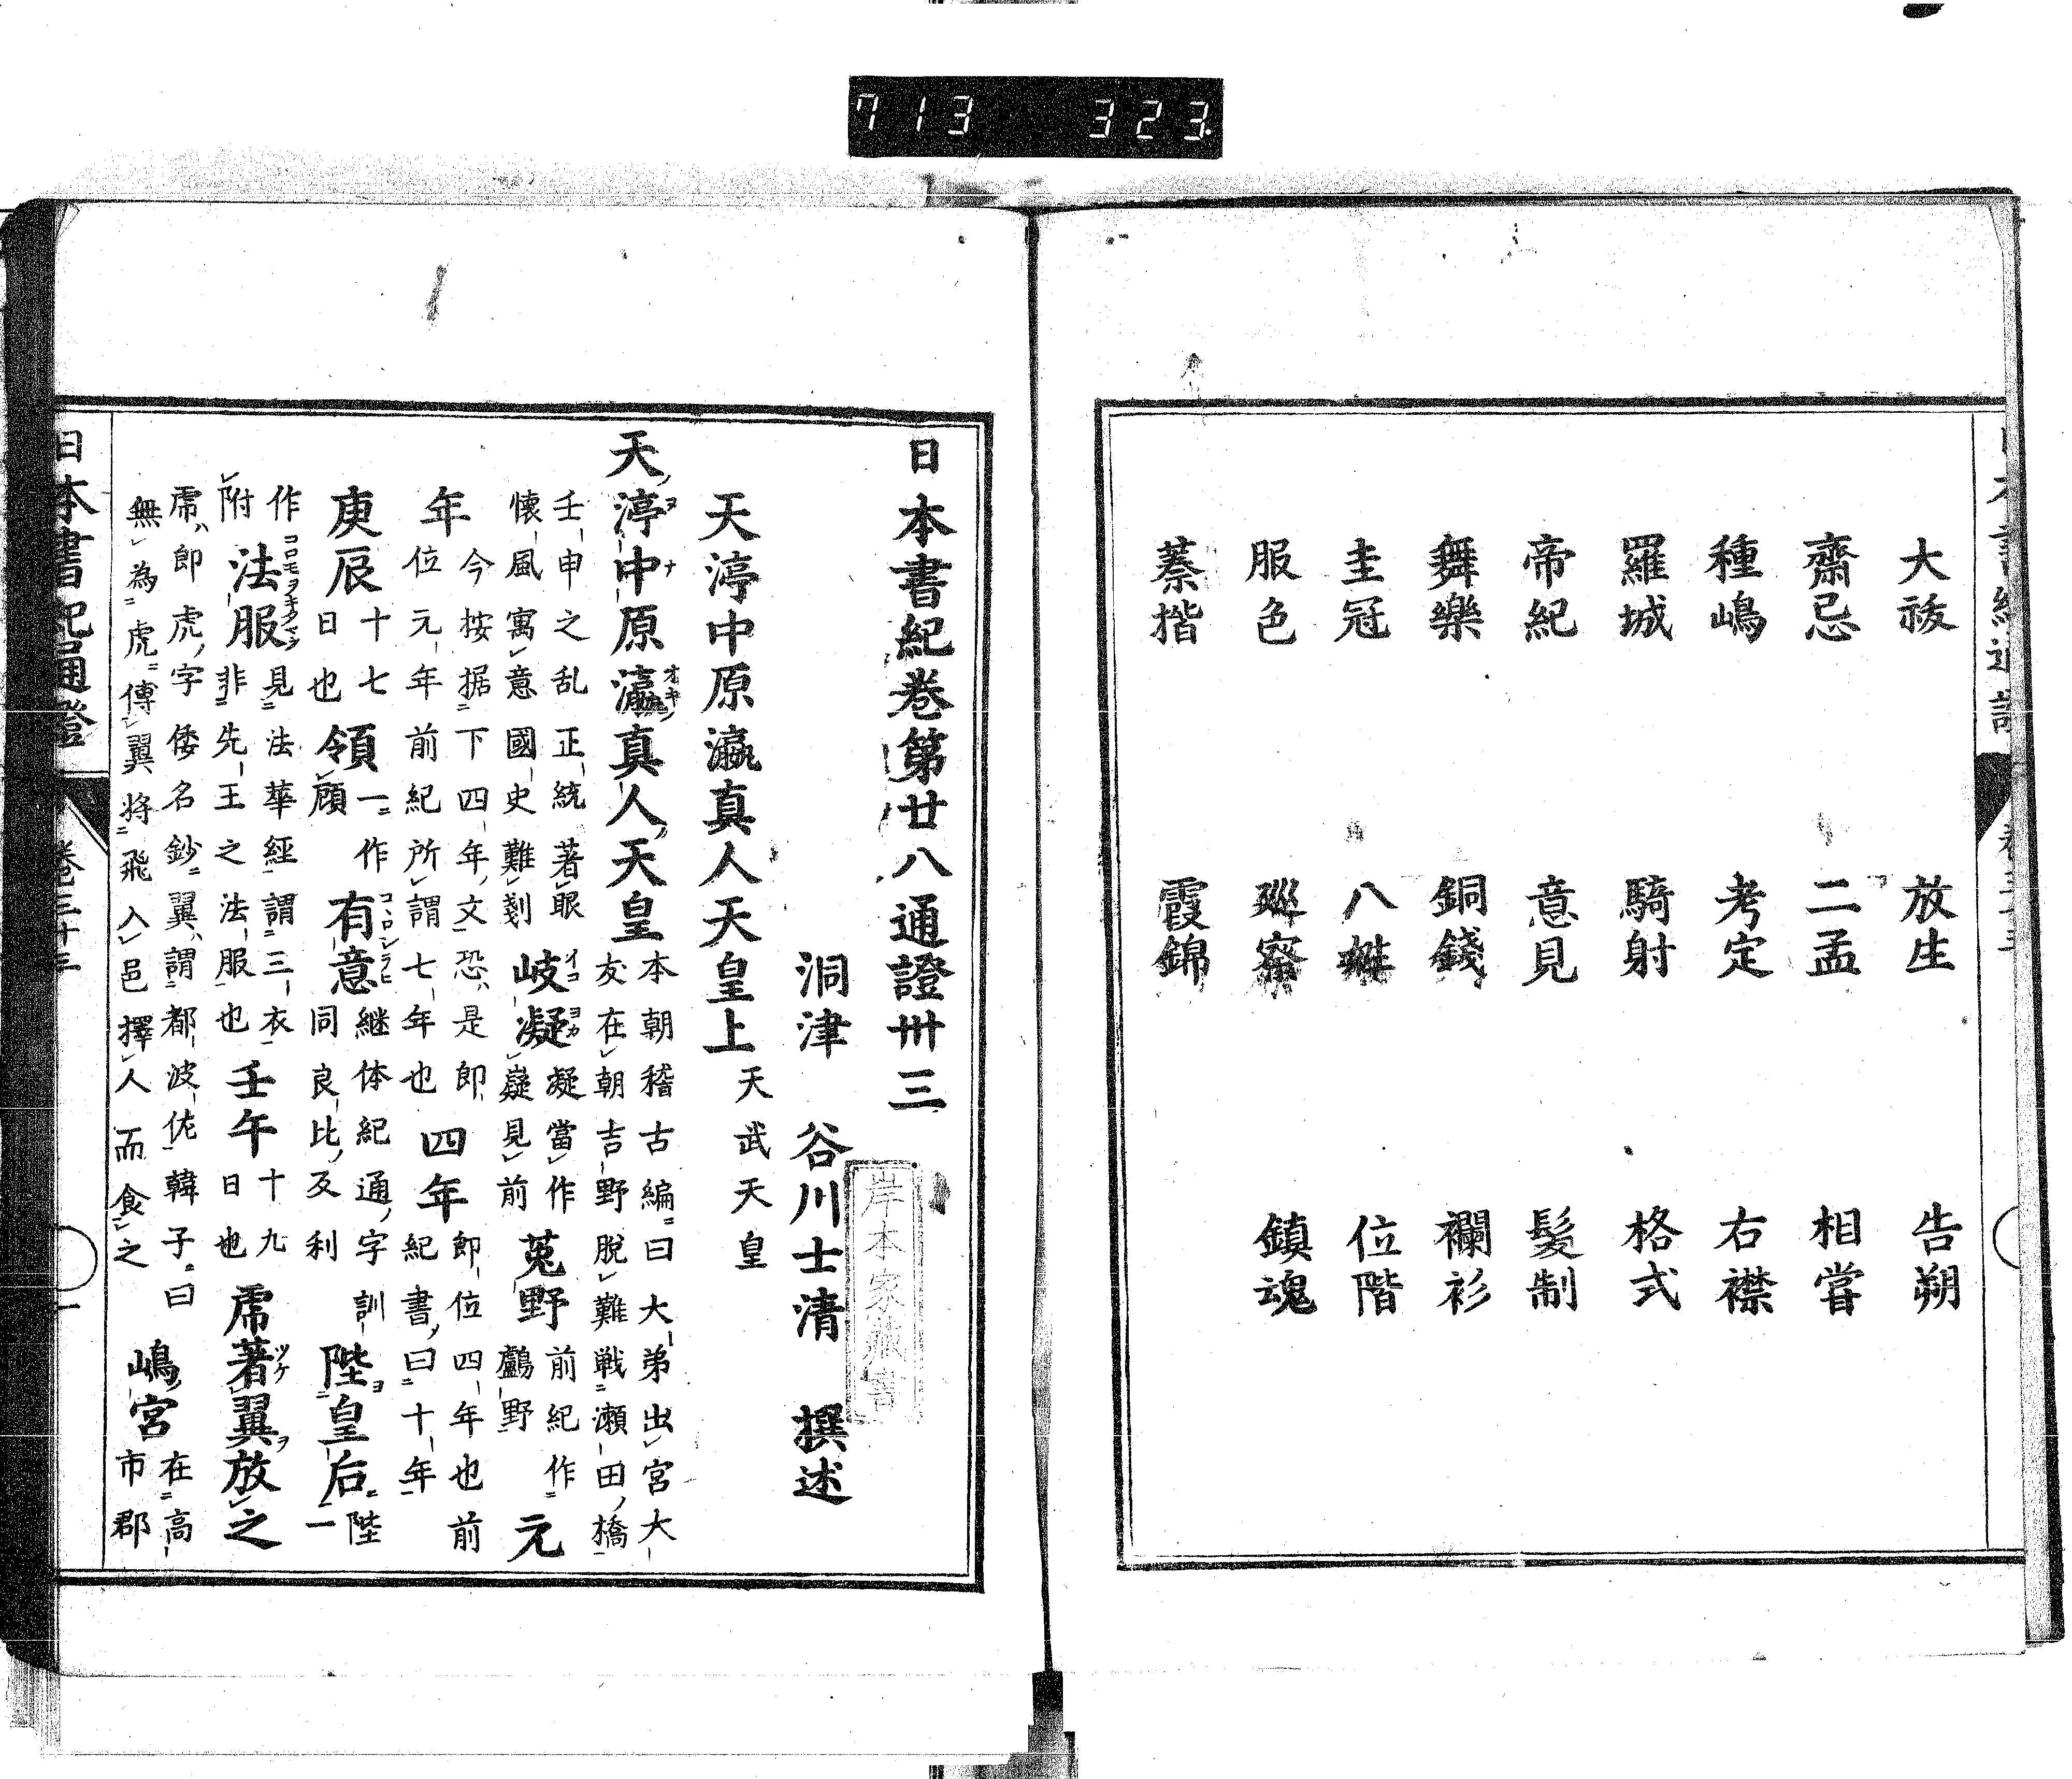 713 323
大祓 放生 告朔
齋忌 二孟 相甞
種嶋 考定 右襟
羅城 騎射 格式
帝紀 意見 髮制
舞樂 銅錢 襴衫
圭冠 八 位階
服色 廵察 鎮魂
蓁揩 霞錦
日本書紀卷第廿八通證卅三
洞津 谷川士清 撰述
岸本家藏書
天渟中原瀛真人天皇上 天武天皇
天渟中原瀛真人天皇 本朝稽古編曰大弟出宮大
友在朝吉野脫難戦瀬田橋
壬申之乱正統著眼
懐風寓意國史難剗 岐凝 凝當作
嶷見前 菟野 前紀作
鸕野 元
年 今按据下四年文恐是即
位元年前紀所謂七年也 四年 即位四年也前
紀書曰十年
庚辰 十七
日也 領 一作
顧 有意 継体紀通字訓
同良比及利 陛皇后 陛
一
作
附 法服 見法華經謂三衣
非先王之法服也 壬午 十九
日也 虎著翼放之
乕即虎字倭名鈔翼謂都波佐韓子曰
無為虎傅翼将飛入邑擇人而食之 嶋宮 在高
市郡
日本書紀通證 卷三十三 一